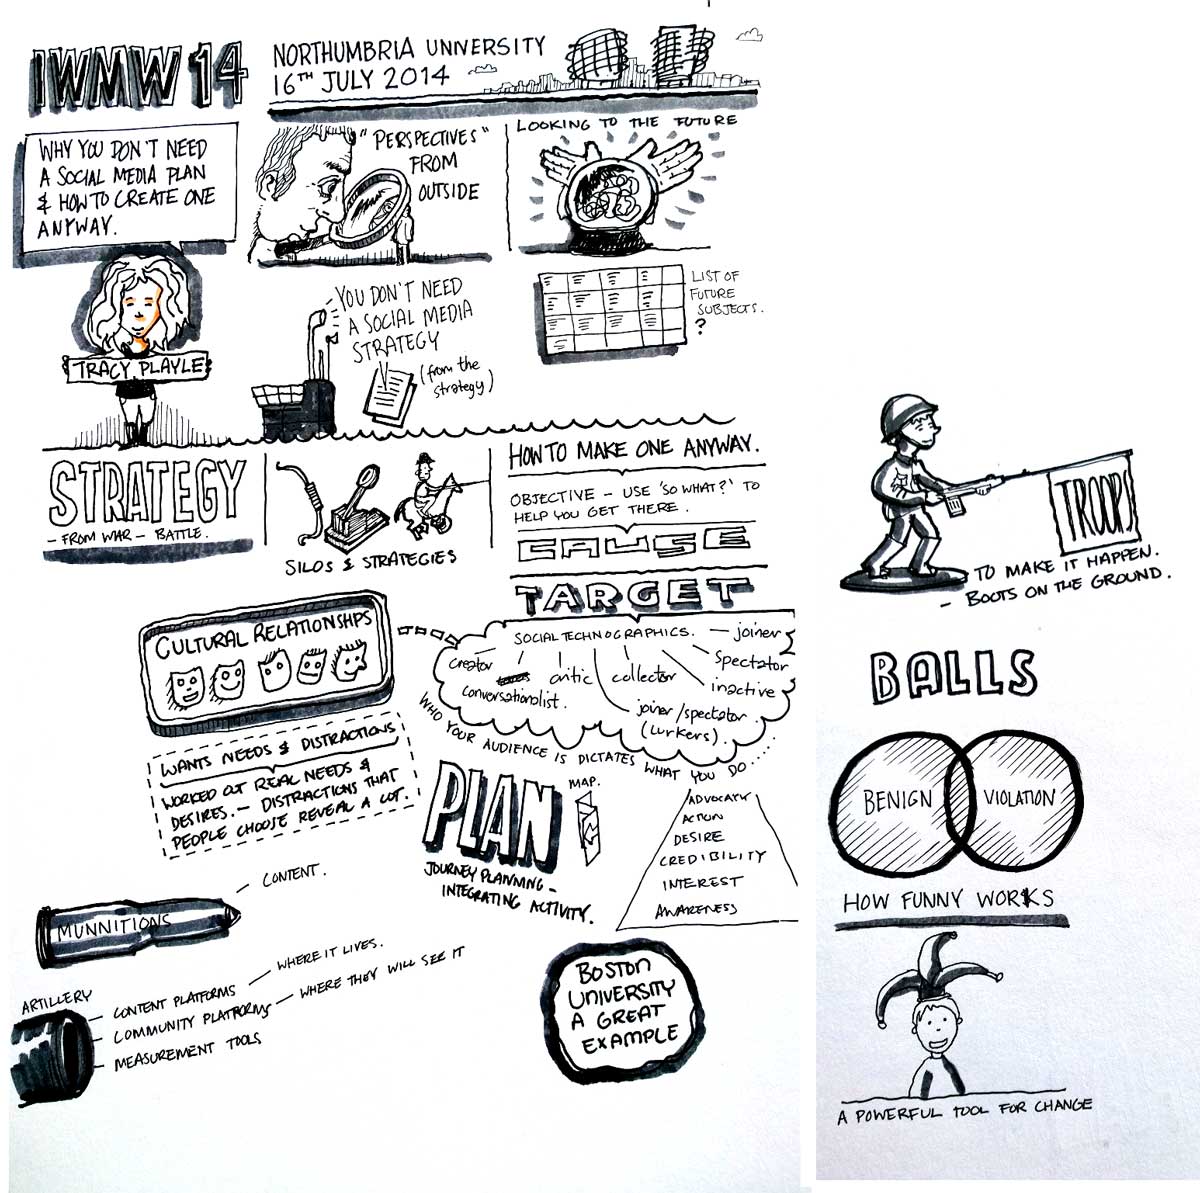 IWMW 14
NORTHUMBRIA UNIVERSITY
16TH JULY 2014
WHY YOU DON'T NEED
A SOCIAL MEDIA PLAN
& HOW TO CREATE ONE
ANYWAY.
TRACY PLAYLE
"PERSPECTIVES"
FROM
OUTSIDE
LOOKING TO THE FUTURE
LIST OF
FUTURE
SUBJECTS.
?
YOU DON'T NEED
A SOCIAL MEDIA
STRATEGY
(from the
strategy)
STRATEGY
- FROM WAR - BATTLE.
SILOS & STRATEGIES
HOW TO MAKE ONE ANYWAY.
OBJECTIVE - USE 'SO WHAT?' TO
HELP YOU GET THERE.
CAUSE
TARGET
SOCIAL TECHNOGRAPHICS.
joiner
Spectator
inactive
creator
critic
collector
conversationalist.
joiner/spectator
(lurkers).
WHO YOUR AUDIENCE IS DICTATES WHAT YOU DO.....
CULTURAL RELATIONSHIPS
WANTS NEEDS & DISTRACTIONS
WORKED OUT REAL NEEDS &
DESIRES. - DISTRACTIONS THAT
PEOPLE CHOOSE REVEAL A LOT.
PLAN
MAP.
JOURNEY PLANNING -
INTEGRATING ACTIVITY.
ADVOCATE
ACTION
DESIRE
CREDIBILITY
INTEREST
AWARENESS
MUNNITIONS
CONTENT.
ARTILLERY
CONTENT PLATFORMS
WHERE IT LIVES.
COMMUNITY PLATFORMS
WHERE THEY WILL SEE IT
MEASUREMENT TOOLS
BOSTON
UNIVERSITY
A GREAT
EXAMPLE
TROOPS
TO MAKE IT HAPPEN.
- BOOTS ON THE GROUND.
BALLS
BENIGN
VIOLATION
HOW FUNNY WORKS
A POWERFUL TOOL FOR CHANGE